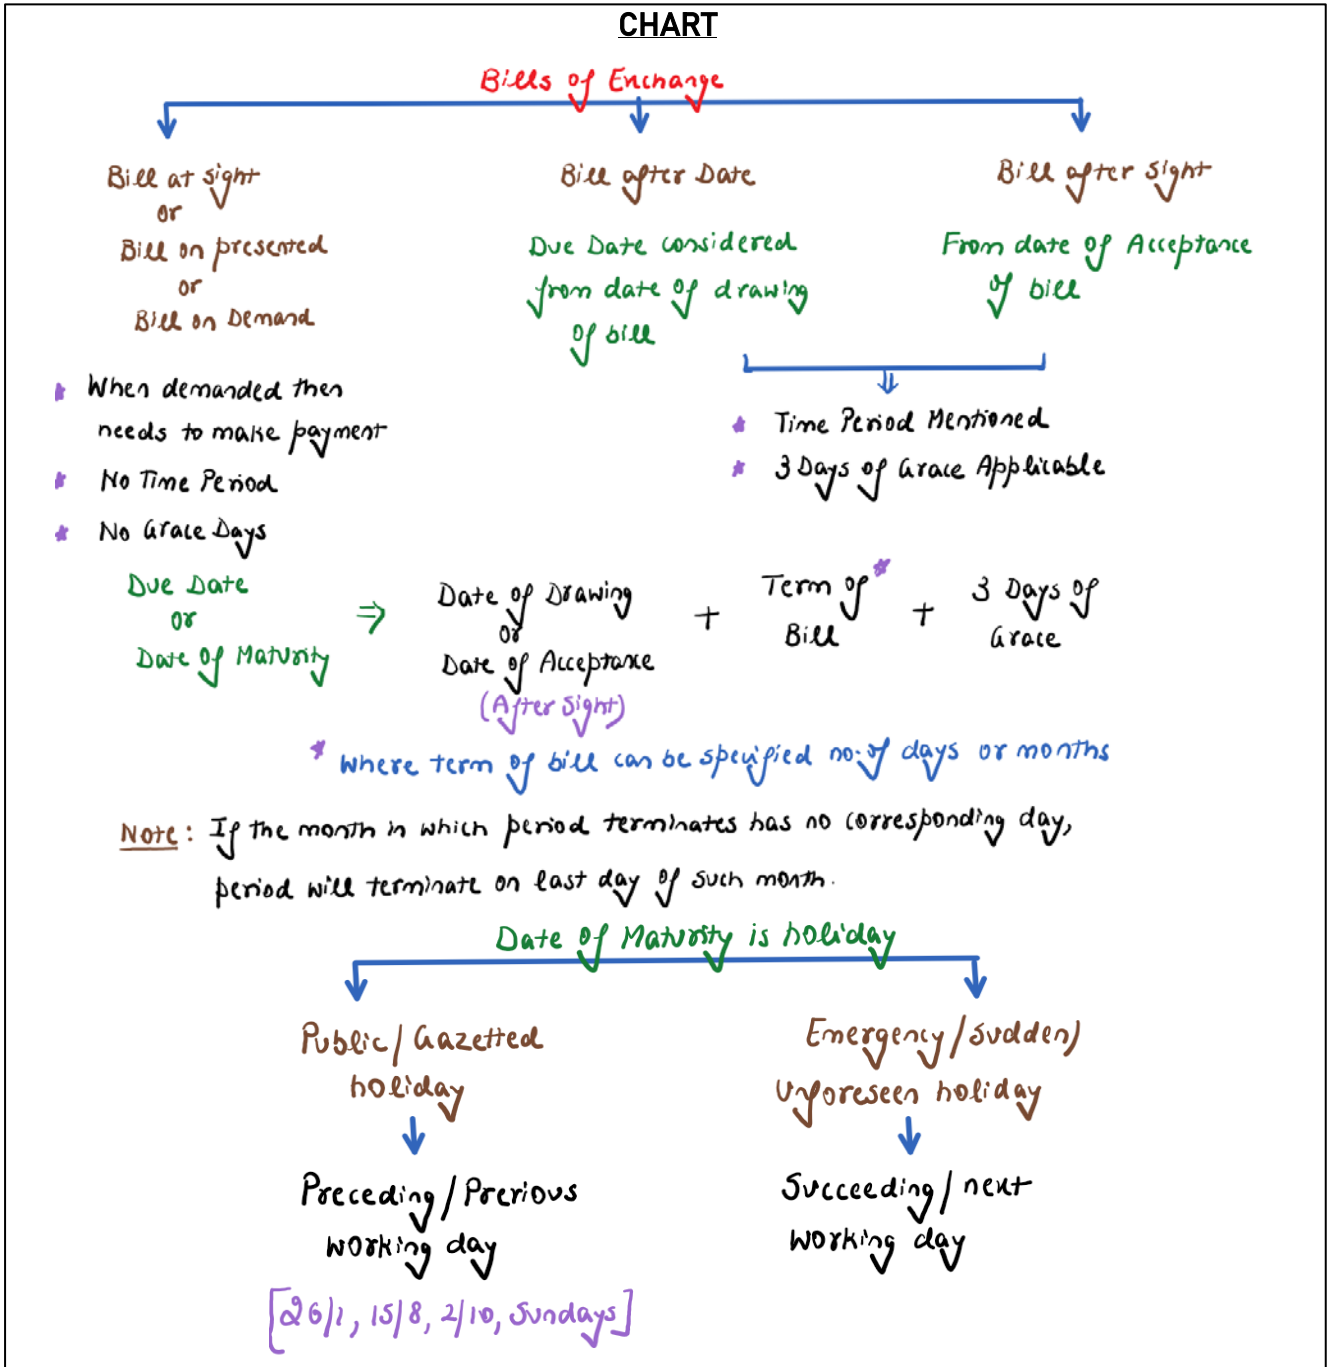 CHART
Bills of Exchange
Bill at sight
or
Bill on presented
or
Bill on Demand
Bill after Date
Due Date considered
from date of drawing
of bill
Bill after sight
From date of Acceptance
of bill
* When demanded then
needs to make payment
* No Time Period
* No Grace Days
* Time Period Mentioned
* 3 Days of Grace Applicable
Due Date
or
Date of Maturity
⇒
Date of Drawing
or
Date of Acceptance
(After sight)
+
Term of *
Bill
+
3 Days of
Grace
* Where term of bill can be specified no. of days or months
Note : If the month in which period terminates has no corresponding day,
period will terminate on last day of such month.
Date of Maturity is holiday
Public/Gazetted
holiday
Preceding/Previous
working day
[26/1, 15/8, 2/10, Sundays]
Emergency/sudden/
Unforeseen holiday
Succeeding/next
working day